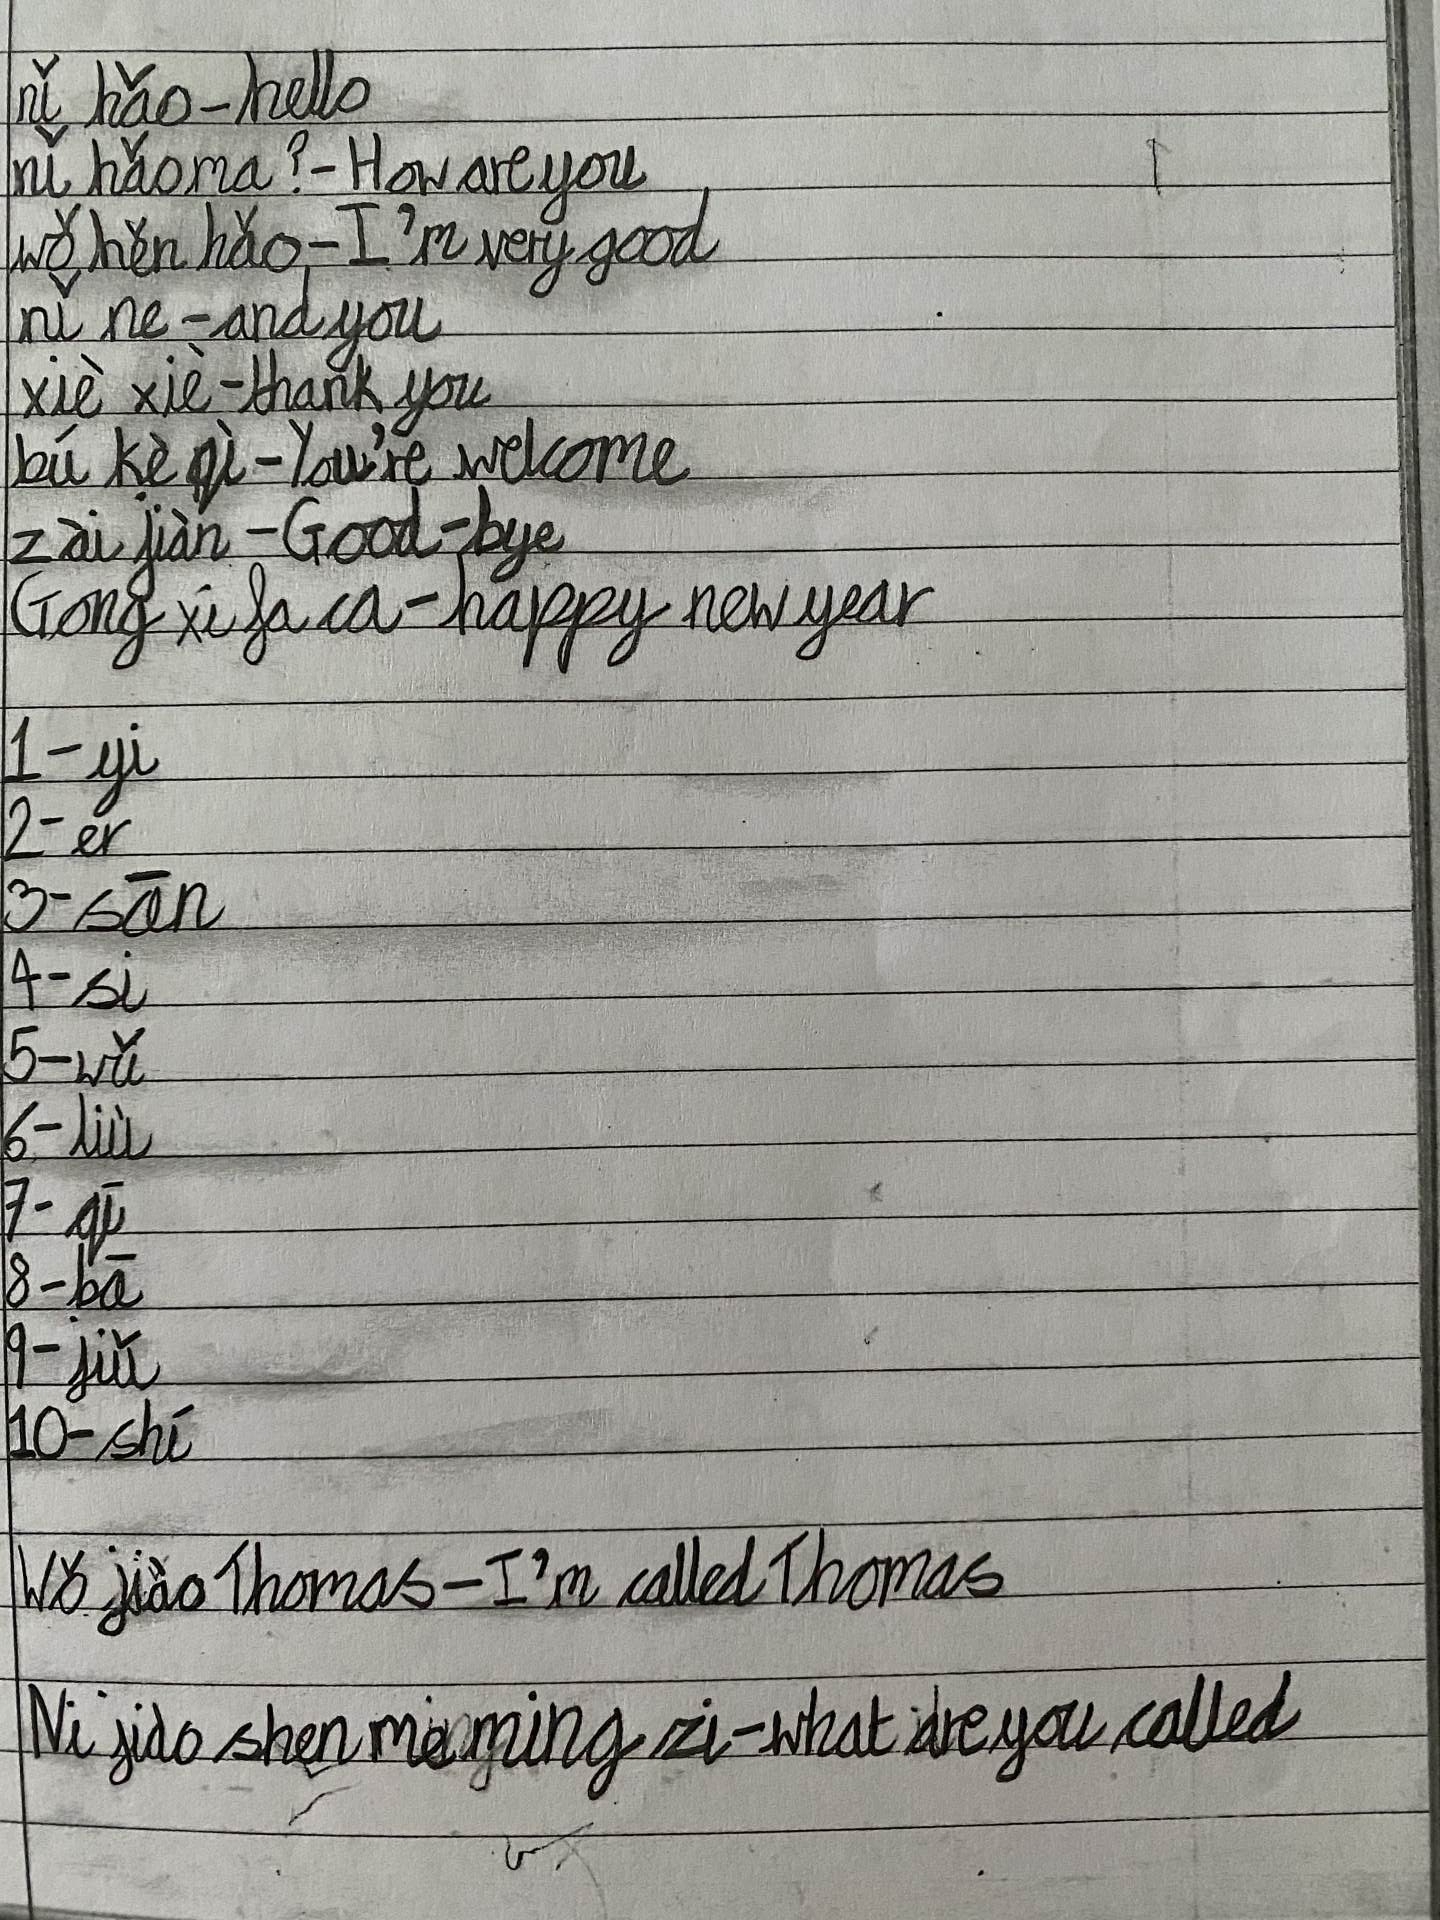 nǐ hǎo-hello
nǐ hǎoma?-How are you
wǒ hěn hǎo-I'm very good
nǐ ne-and you
xiè xiè-thank you
bú kè qì-You're welcome
zài jiàn-Good-bye
Gong xi fa ca-happy new year
1-yi
2-er
3-sān
4-si
5-wǔ
6-liù
7-qī
8-bā
9-jiǔ
10-shí
Wǒ jiào Thomas-I'm called Thomas
Ni jiào shen me ming zi-what are you called